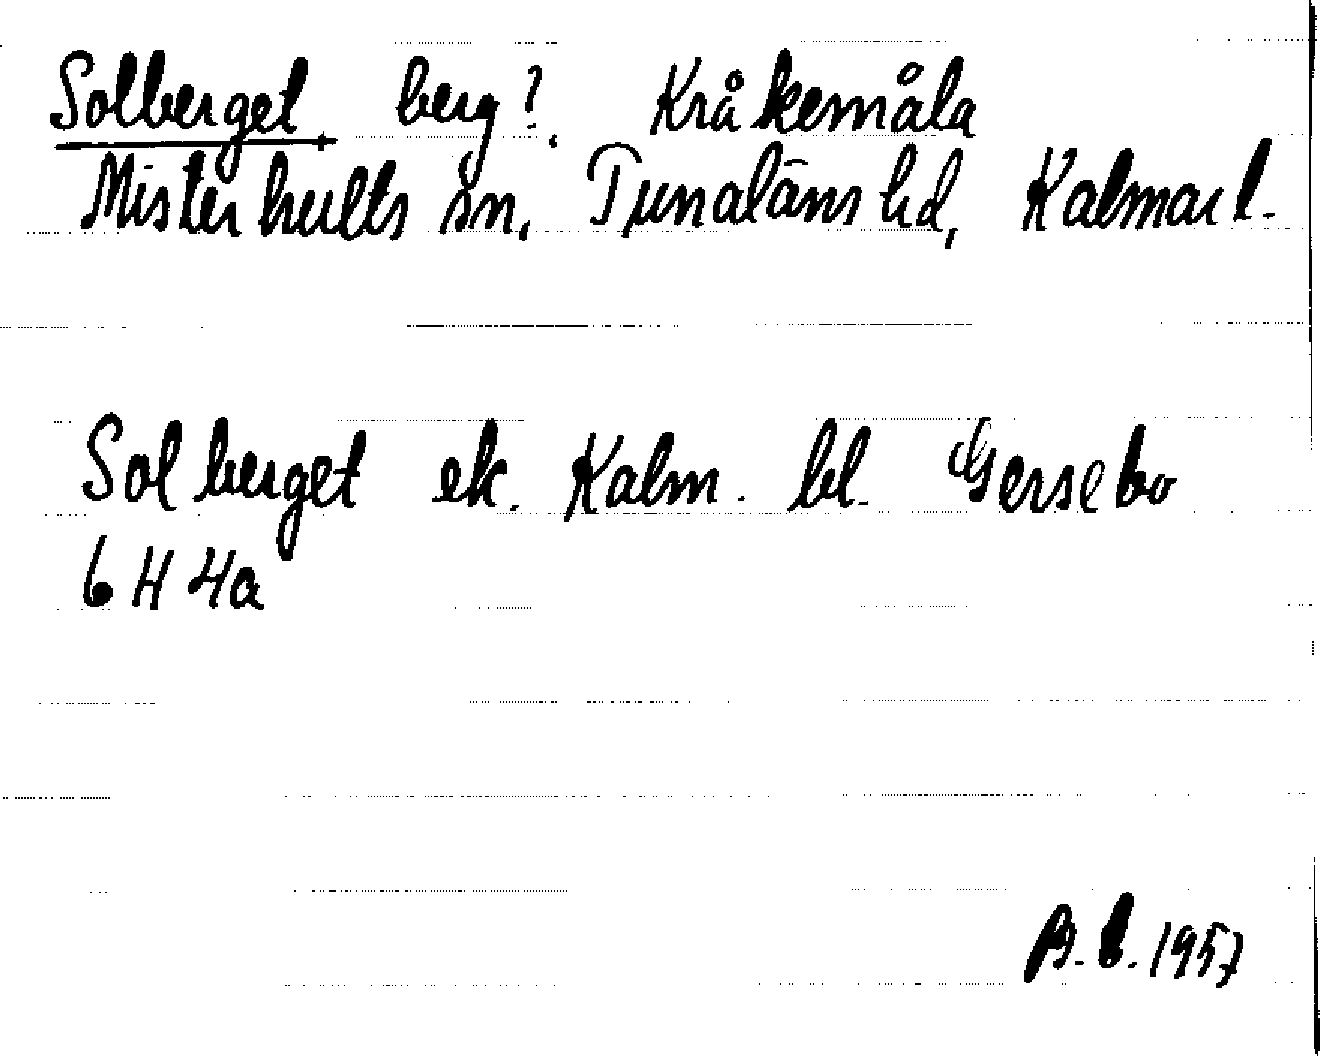 Solberget, berg?, Kråkemåla
Misterhults sn, Tunaläns hd, Kalmar l.
Solberget ek. Kalm. bl. Gersebo
6 H 4a
B.L. 1957